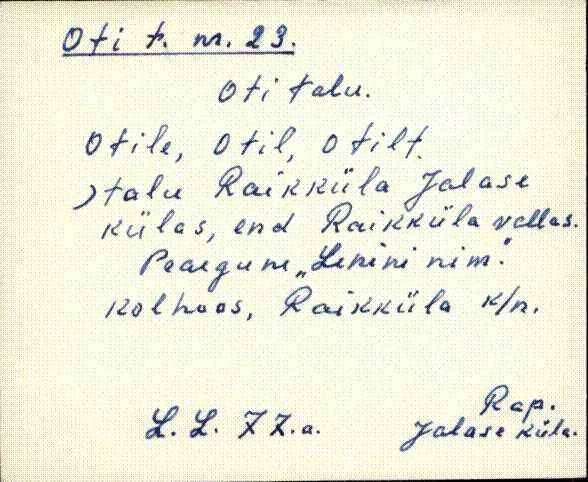 Oti t. nr. 23.
Oti talu.
Otile, Otil, Otilt.
) talu Raikküla Jalase
külas, end Raikküla vallas.
Praegune „Lenini nim."
kolhoos, Raikküla k/n.
L. L. 77.a.
Rap.
Jalase küla.